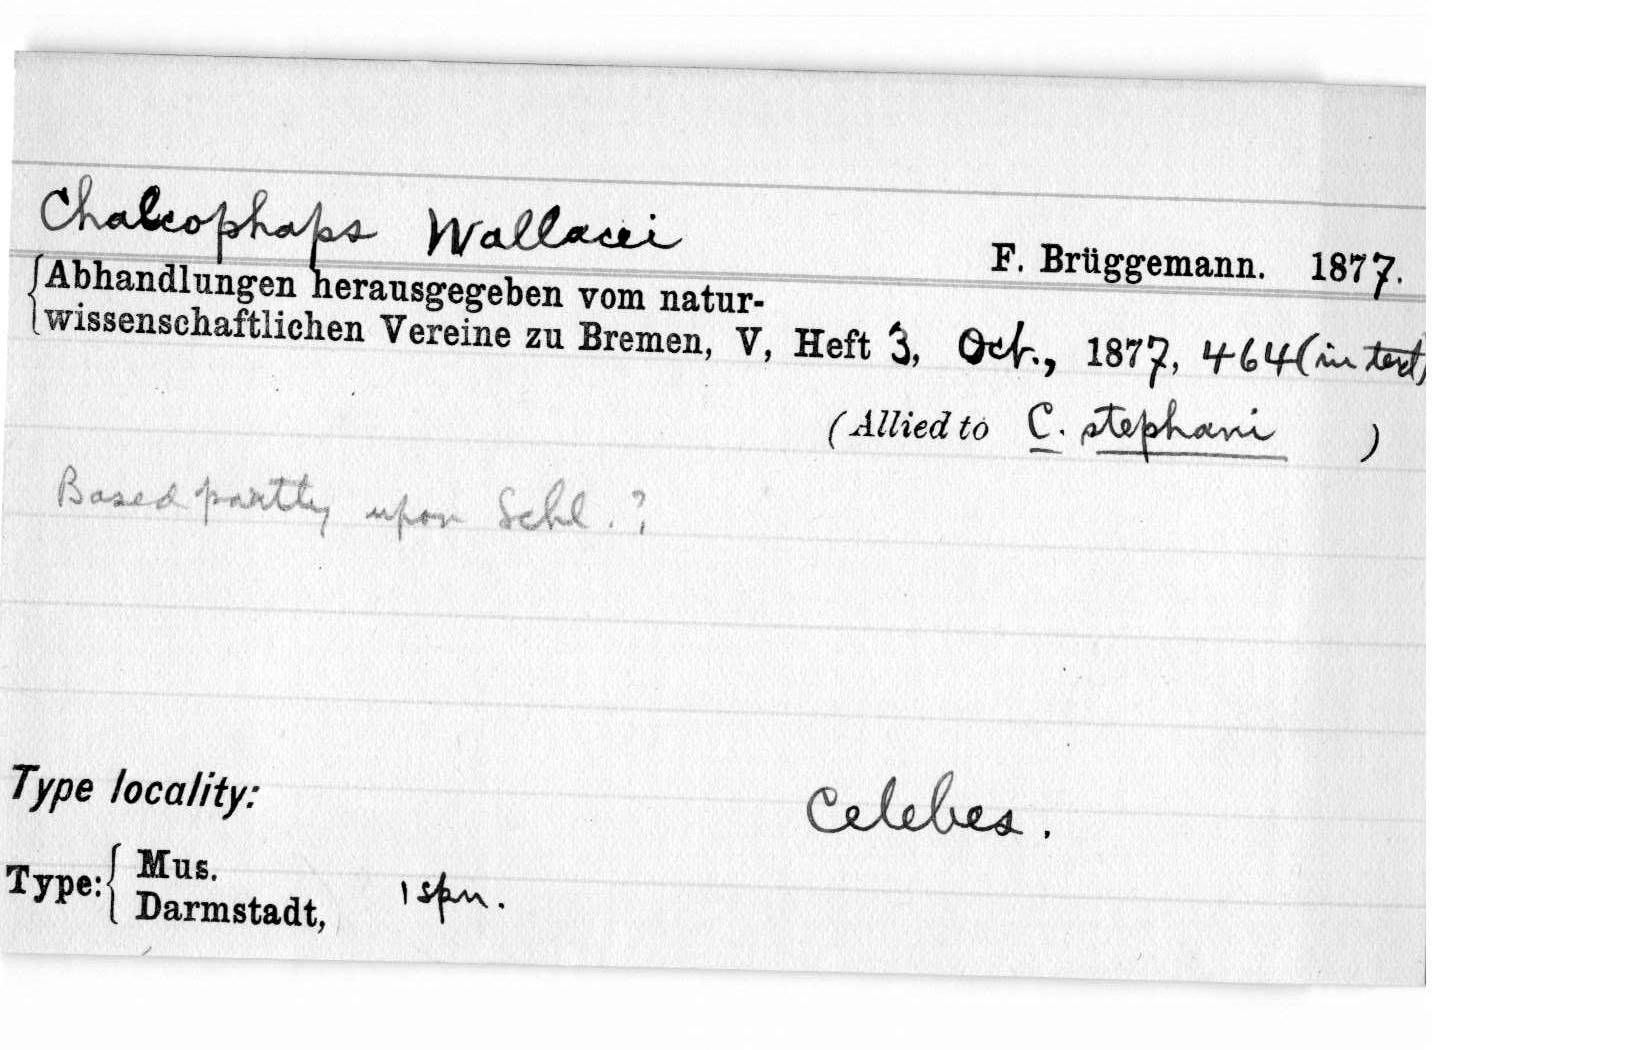 Chalcophaps Wallacei
F. Brüggemann. 1877.
{Abhandlungen herausgegeben vom natur-
wissenschaftlichen Vereine zu Bremen, V, Heft 3, Oct., 1877, 464 (in text)
(Allied to C. stephani )
Based partly upon Schl. ?
Type locality: Celebes.
Type: { Mus.
Darmstadt, 1 spm.